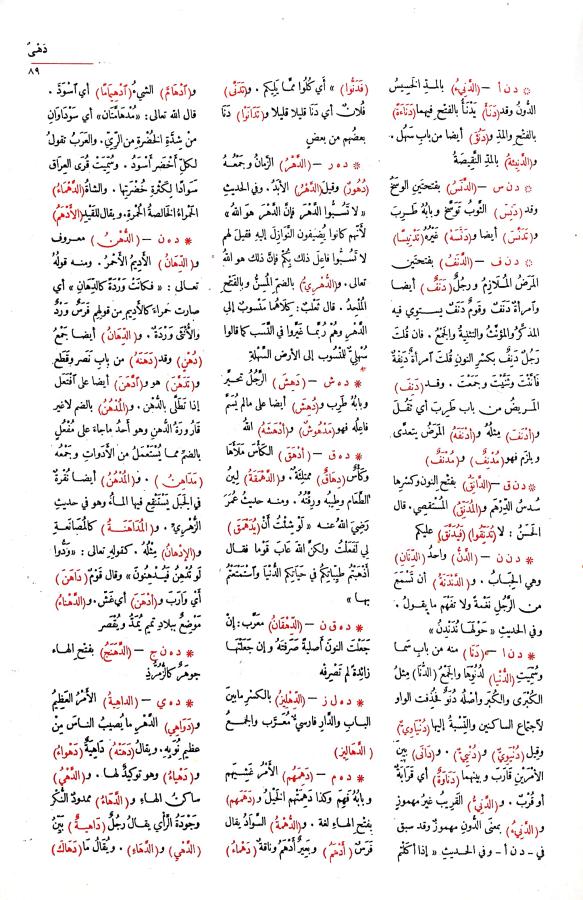 دَهْيٌ
٨٩
* د ن أ – (الدَّنِيءُ) بالمدّ الخَسِيسُ
الدُّون وقد (دَنَأَ) يَدْنَأُ بالفتح فيهما (دَنَاءَةً)
بالفتح والمدّ و (دَنُؤَ) أيضا من باب سَهُل .
و (الدَّنِيئةُ) بالمدّ النَّقِيصَةُ
* د ن س – (الدَّنَسُ) بفتحتين الوَسَخُ
وقد (دَنِسَ) الثَّوبُ تَوَسَّخَ وبابُهُ طَرِبَ
و (تَدَنَّسَ) أيضا و (دَنَّسَهُ) غَيْرُه (تَدْنِيسًا)
* د ن ف – (الدَّنَفُ) بفتحتين
المَرَضُ المُلَازِمُ ورَجُلٌ (دَنَفٌ) أيضا
وآمرأَةٌ دَنَفٌ وقَومٌ دَنَفٌ يستوى فيه
المذكَّرُ والمؤنَّث والتثنيةُ والجَمْعُ . فان قُلتَ
رَجُلٌ دَنِفٌ بكسْرِ النون قُلتَ آمرأَةٌ دَنِفَةٌ
فأنَّثْتَ وثَنَّيْتَ وجَمَعْتَ . وقـد (دَنِفَ)
المَـرِيضُ من باب طَرِبَ أي ثَقُـلَ
و (أَدْنَفَ) مِثْلُهُ و (أَدْنَفَهُ) المَرَضُ يَتعدَّى
ويلزم فهو (مُدْنِفٌ) و (مُدْنَفٌ)
* د ن ق – (الدَّانِقُ) بفتح النون وكسْرِها
سُدسُ الدِّرْهَمِ و (المُدَنِّقُ) المُسْتَقْصِي . قال
الحَسَنُ : لا (تُدَنِّقُوا) (فَيُدَنَّقَ) عليكم
* د ن ن – (الدَّنُّ) واحدُ (الدِّنَانِ)
وهى الحِبَابُ . و (الدَّنْدَنَةُ) أن تَسْمَعَ
من الرَّجُلِ نَغْمَةً ولا تَفْهَمَ ما يقولُ .
وفي الحديث «حَوْلَهَا نُدَنْدِنُ»
* د ن ا – (دَنَا) منه من باب سَما
وسُمِّيَتِ (الدُّنْيَا) لدُنُوّها والجَمْعُ (الدُّنَا) مِثْلُ
الكُبْرَى والكُبَرِ وأصْلُه دُنَوٌ فحُذفت الواو
لاجتماع الساكنين والنِّسْبَةُ إليها (دُنْيَاوِيّ)
وقِيل (دُنْيَوِيّ) و (دُنْيِيّ) . و (دَانَى) بَيْنَ
الأمرَيْنِ قَارَبَ وبينهما (دَنَاوَةٌ) أي قَرَابَةٌ
أو قُرْبٌ . و (الدَّنِيُّ) القَرِيب غيرُ مهموز
و (الدَّنِيءُ) بمعنى الدُّونِ مهموزٌ وقد سبق
في - د ن أ - وفي الحديث «إذا أكَلْتم
(فَدَنُّوا)» أي كُلُوا مما يَلِيكم . و (تَدَنَّى)
فُلَانٌ أي دَنَا قليلا قليلا و (تَدَانَوْا) دَنَا
بعضُهم من بعضٍ
* د ه ر – (الدَّهْرُ) الزَّمَانُ وجَمْعُهُ
(دُهُورٌ) وقيل (الدَّهْرُ) الأَبَدُ . وفي الحديث
«لا تَسُبُّوا الدَّهْرَ فإنَّ الدَّهْرَ هو اللهُ»
لأنهم كانوا يُضِيفون النَّوَازِل إليه فقيل لهم
لا تَسُبُّوا فاعِلَ ذلك بِكُمْ فإنّ ذلك هو اللهُ
تعالى . و (الدُّهْرِيُّ) بالضم المُسِنُّ وبالفَتْحِ
المُلْحِدُ . قال ثَعْلَبٌ: كِلَاهُما مَنْسُوبٌ إلى
الدَّهْرِ وهُمْ رُبَّمَا غَيَّرُوا في النَّسَبِ كما قالوا
سُهْلِيٌّ للنَّسُوب إلى الأرضِ السَّهْلةِ
* د ه ش – (دَهِشَ) الرَّجُلُ تَحَيَّر
وبابُهُ طَرِبَ و (دُهِشَ) أيضا على مالم يُسَمَّ
فاعِلُه فهو (مَدْهُوشٌ) و (أَدْهَشَهُ) اللهُ
* د ه ق – (أَدْهَقَ) الكأْسَ مَلأَهَا
وكَأْسٌ (دِهَاقٌ) مُمْتَلِئَةٌ . و (الدَّهْمَقَةُ) لِينُ
الطَّعَام وطِيبُه ورِقَّتُه . ومنه حديثُ عُمَرَ
رَضِيَ اللهُ عنه «لو شِئْتُ أَنْ (يُدَهْمَقَ)
لِي لَفَعَلْتُ ولكنَّ اللهَ عَابَ قوما فقـال
أَذْهَبْتُمْ طَيِّبَاتِكُمْ فى حَيَاتِكم الدُّنْيَا وَآسْتَمْتَعْتُم
بها»
* د ه ق ن – (الدِّهْقَانُ) مُعَرَّب: إنْ
جَعَلْتَ النونَ أصليةً صَرَفْتَهُ وإن جَعَلْتَها
زائدةً لم تَصْرِفْه
* د ه ل ز – (الدِّهْلِيزُ) بالكسْرِ ما بين
البـابِ والدَّارِ فارسيٌّ مُعَـرَّب والجمـعُ
(الدَّهَالِيزُ)
* د ه م – (دَهِمَهُم) الأَمْرُ غَشِيَهم
وبابُهُ فَهِمَ وكذا دَهِمَتْهم الخَيْلُ و (دَهَمَهم)
بفتح الهاء لغة . و (الدُّهْمَةُ) السَّوَادُ يقال
فَرَسٌ (أَدْهَمُ) وبَعِيرٌ أَدْهَمُ وناقةٌ (دَهْمَاءُ)
و (آدْهَامَّ) الشيءُ (آدْهِيمَامًا) أى آسْوَدَّ .
قال اللهُ تعالى: «مُدْهَامَّتَان» أي سَوْدَاوَانِ
مِنْ شِدَّةِ الخُضْرَةِ من الرِّيِّ. والعَرَبُ تقولُ
لكلّ أَخْضَرَ أَسْوَدُ . وسُمِّيَت قُرَى العِرَاقِ
سَوَادًا لكَثْرةِ خُضْرَتِها . والشاةُ (الدَّهْمَاءُ)
الحَمْرَاءُ الخَالِصَةُ الحُمْرةِ. ويقال للقَيْد (الأَدْهَمُ)
* د ه ن – (الدُّهْنُ) معــروف
و (الدِّهَانُ) الأَدِيمُ الأَحْمَرُ . ومنه قولُه
تعـالى : «فكَانَتْ وَرْدَةً كَالدِّهَانِ» أي
صارت حَمراءَ كالأَدِيمِ من قولِهم فَرَسٌ وَرْدٌ
والأُنثى وَرْدَةٌ . و (الدِّهَانُ) أيضـا جَمْعُ
(دُهْنٍ) وقد (دَهَنَهُ) من بابِ نَصَر وقَطَع
و (تَدَهَّنَ) هو و (آدَّهَنَ) أيضا على آفْتَعَلَ
إذا تَطَلَّى بالدُّهْنِ . و (المُدْهُنُ) بالضم لا غير
قَارُورَةُ الدُّهن وهو أحدُ ماجاء على مُفْعُلٍ
بالضم ممـا يُسْتَعْمَلُ من الأدَواتِ وجَمْعُه
(مَدَاهِنُ) . و (المُدْهُنُ) أيضـا نُقْرةٌ
في الجَبَلِ يَسْتَنْقِع فيها المـاءُ وهو في حديث
الزُّهْرِيّ . و (المُدَاهَنَـةُ) كالمُصَـانَعَـةِ
و (الإدْهَانُ) مِثْلُهُ . كقولِهِ تعالى: «وَدُّوا
لَو تُدْهِنُ فَيُدْهِنُونَ» وقال قَوْمٌ (دَاهَنَ)
أي وَارَبَ و (أَدْهَنَ) أي غَشَّ. و (الدَّهْنَاءُ)
مَوْضِعٌ بـِلادِ تَمِيم يُمَدُّ ويُقْصَر
* د ه ن ج – (الدَّهْنَجُ) بفتح الهـاء
جوهرٌ كالزُّمُرُّذِ
* د ه ي – (الداهيةُ) الأَمْرُ العَظِيمُ
و (دَوَاهِي) الدَّهْرِ ما يُصيبُ الناسَ مِنْ
عظيم نُوَبِهِ. ويقالُ (دَهَتْهُ) دَاهِيَةٌ (دَهْوَاءُ)
و (دَهْيَاءُ) وهو توكيدٌ لها . و (الدَّهْيُ)
ساكنُ الهاءِ و (الدَّهَاءُ) ممدودٌ النُّكْر
وجَوْدَةُ الرَّأْي يقالُ رَجُلٌ (داهِيـةٌ) بَيِّنُ
(الدَّهْيِ) و (الدَّهاءِ) . ويُقَالُ مَا (دَهَاكَ)